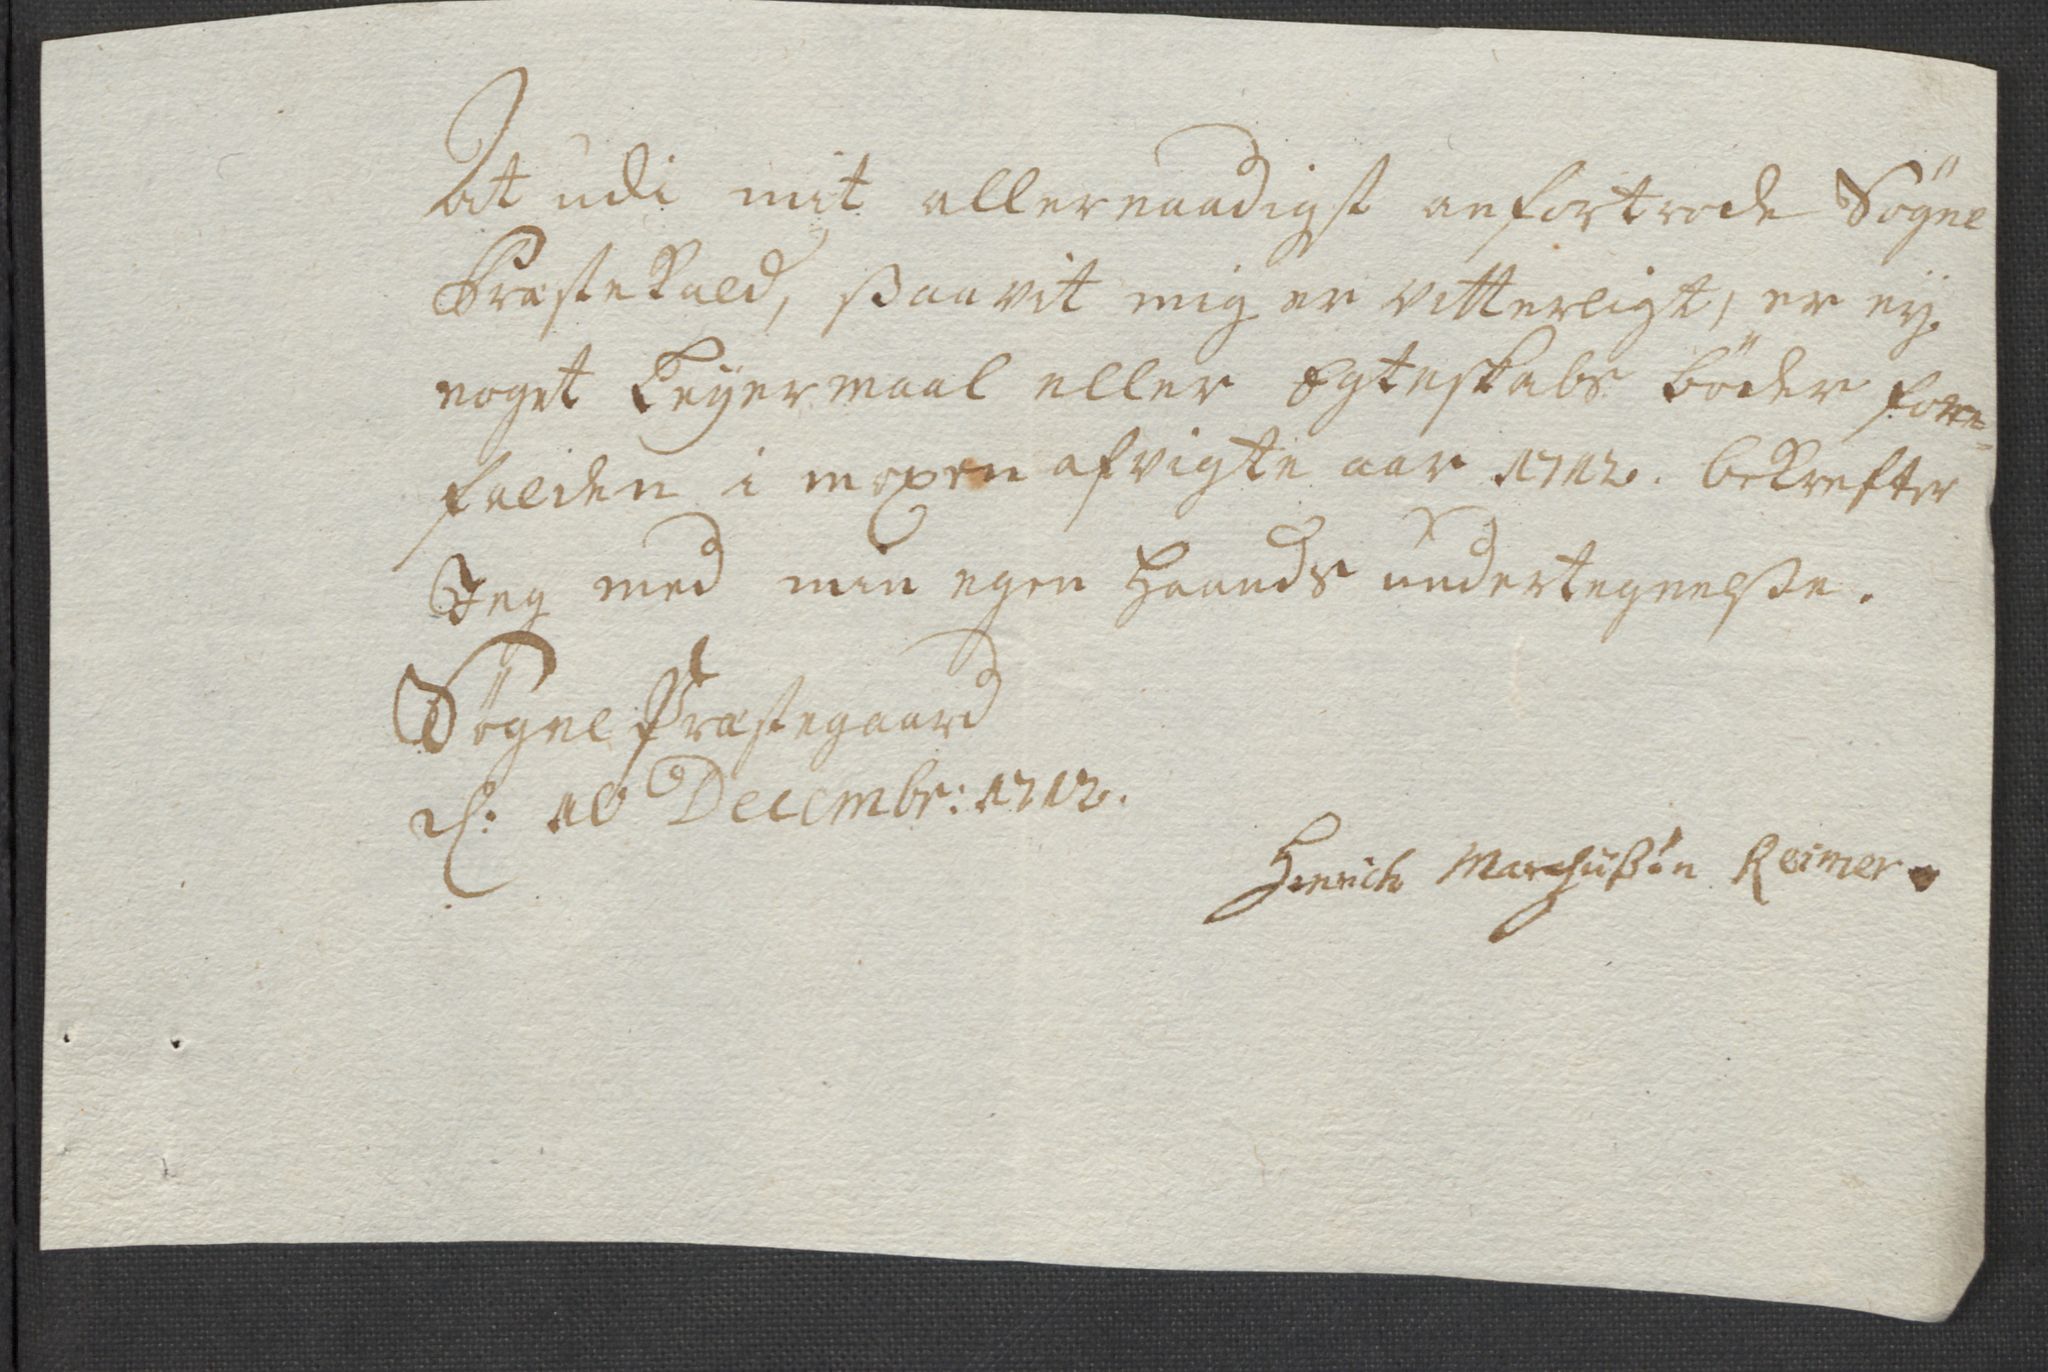 At udi mit allernaadigst anfortrode Sögne
Præstekald, ßaavit mig er vitterligt, er ey
noget Leyermaal eller Egteskabs böder fore-
falden i nexten afvigte aar 1712. bekrefter
Jeg med min egen Haands undertegnelße.
Sögne Præstegaard
d: 10 Decembr: 1712.
Henrich Marchußön Reimer.